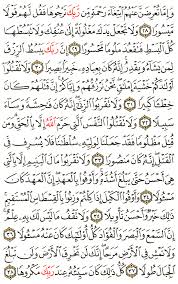 وَإِمَّا تُعْرِضَنَّ عَنْهُمُ ابْتِغَاءَ رَحْمَةٍ مِّن رَّبِّكَ تَرْجُوهَا فَقُل لَّهُمْ قَوْلًا
مَّيْسُورًا ٢٨ وَلَا تَجْعَلْ يَدَكَ مَغْلُولَةً إِلَىٰ عُنُقِكَ وَلَا تَبْسُطْهَا
كُلَّ الْبَسْطِ فَتَقْعُدَ مَلُومًا مَّحْسُورًا ٢٩ إِنَّ رَبَّكَ يَبْسُطُ الرِّزْقَ
لِمَن يَشَاءُ وَيَقْدِرُ إِنَّهُ كَانَ بِعِبَادِهِ خَبِيرًا بَصِيرًا ٣٠ وَلَا تَقْتُلُوا
أَوْلَادَكُمْ خَشْيَةَ إِمْلَاقٍ نَّحْنُ نَرْزُقُهُمْ وَإِيَّاكُمْ إِنَّ قَتْلَهُمْ كَانَ
خِطْئًا كَبِيرًا ٣١ وَلَا تَقْرَبُوا الزِّنَىٰ إِنَّهُ كَانَ فَاحِشَةً وَسَاءَ
سَبِيلًا ٣٢ وَلَا تَقْتُلُوا النَّفْسَ الَّتِي حَرَّمَ اللَّهُ إِلَّا بِالْحَقِّ وَمَن
قُتِلَ مَظْلُومًا فَقَدْ جَعَلْنَا لِوَلِيِّهِ سُلْطَانًا فَلَا يُسْرِف فِّي
الْقَتْلِ إِنَّهُ كَانَ مَنصُورًا ٣٣ وَلَا تَقْرَبُوا مَالَ الْيَتِيمِ إِلَّا بِالَّتِي
هِيَ أَحْسَنُ حَتَّىٰ يَبْلُغَ أَشُدَّهُ وَأَوْفُوا بِالْعَهْدِ إِنَّ الْعَهْدَ كَانَ
مَسْئُولًا ٣٤ وَأَوْفُوا الْكَيْلَ إِذَا كِلْتُمْ وَزِنُوا بِالْقِسْطَاسِ الْمُسْتَقِيمِ
ذَٰلِكَ خَيْرٌ وَأَحْسَنُ تَأْوِيلًا ٣٥ وَلَا تَقْفُ مَا لَيْسَ لَكَ بِهِ عِلْمٌ
إِنَّ السَّمْعَ وَالْبَصَرَ وَالْفُؤَادَ كُلُّ أُولَٰئِكَ كَانَ عَنْهُ مَسْئُولًا ٣٦
وَلَا تَمْشِ فِي الْأَرْضِ مَرَحًا إِنَّكَ لَن تَخْرِقَ الْأَرْضَ وَلَن تَبْلُغَ
الْجِبَالَ طُولًا ٣٧ كُلُّ ذَٰلِكَ كَانَ سَيِّئُهُ عِندَ رَبِّكَ مَكْرُوهًا ٣٨